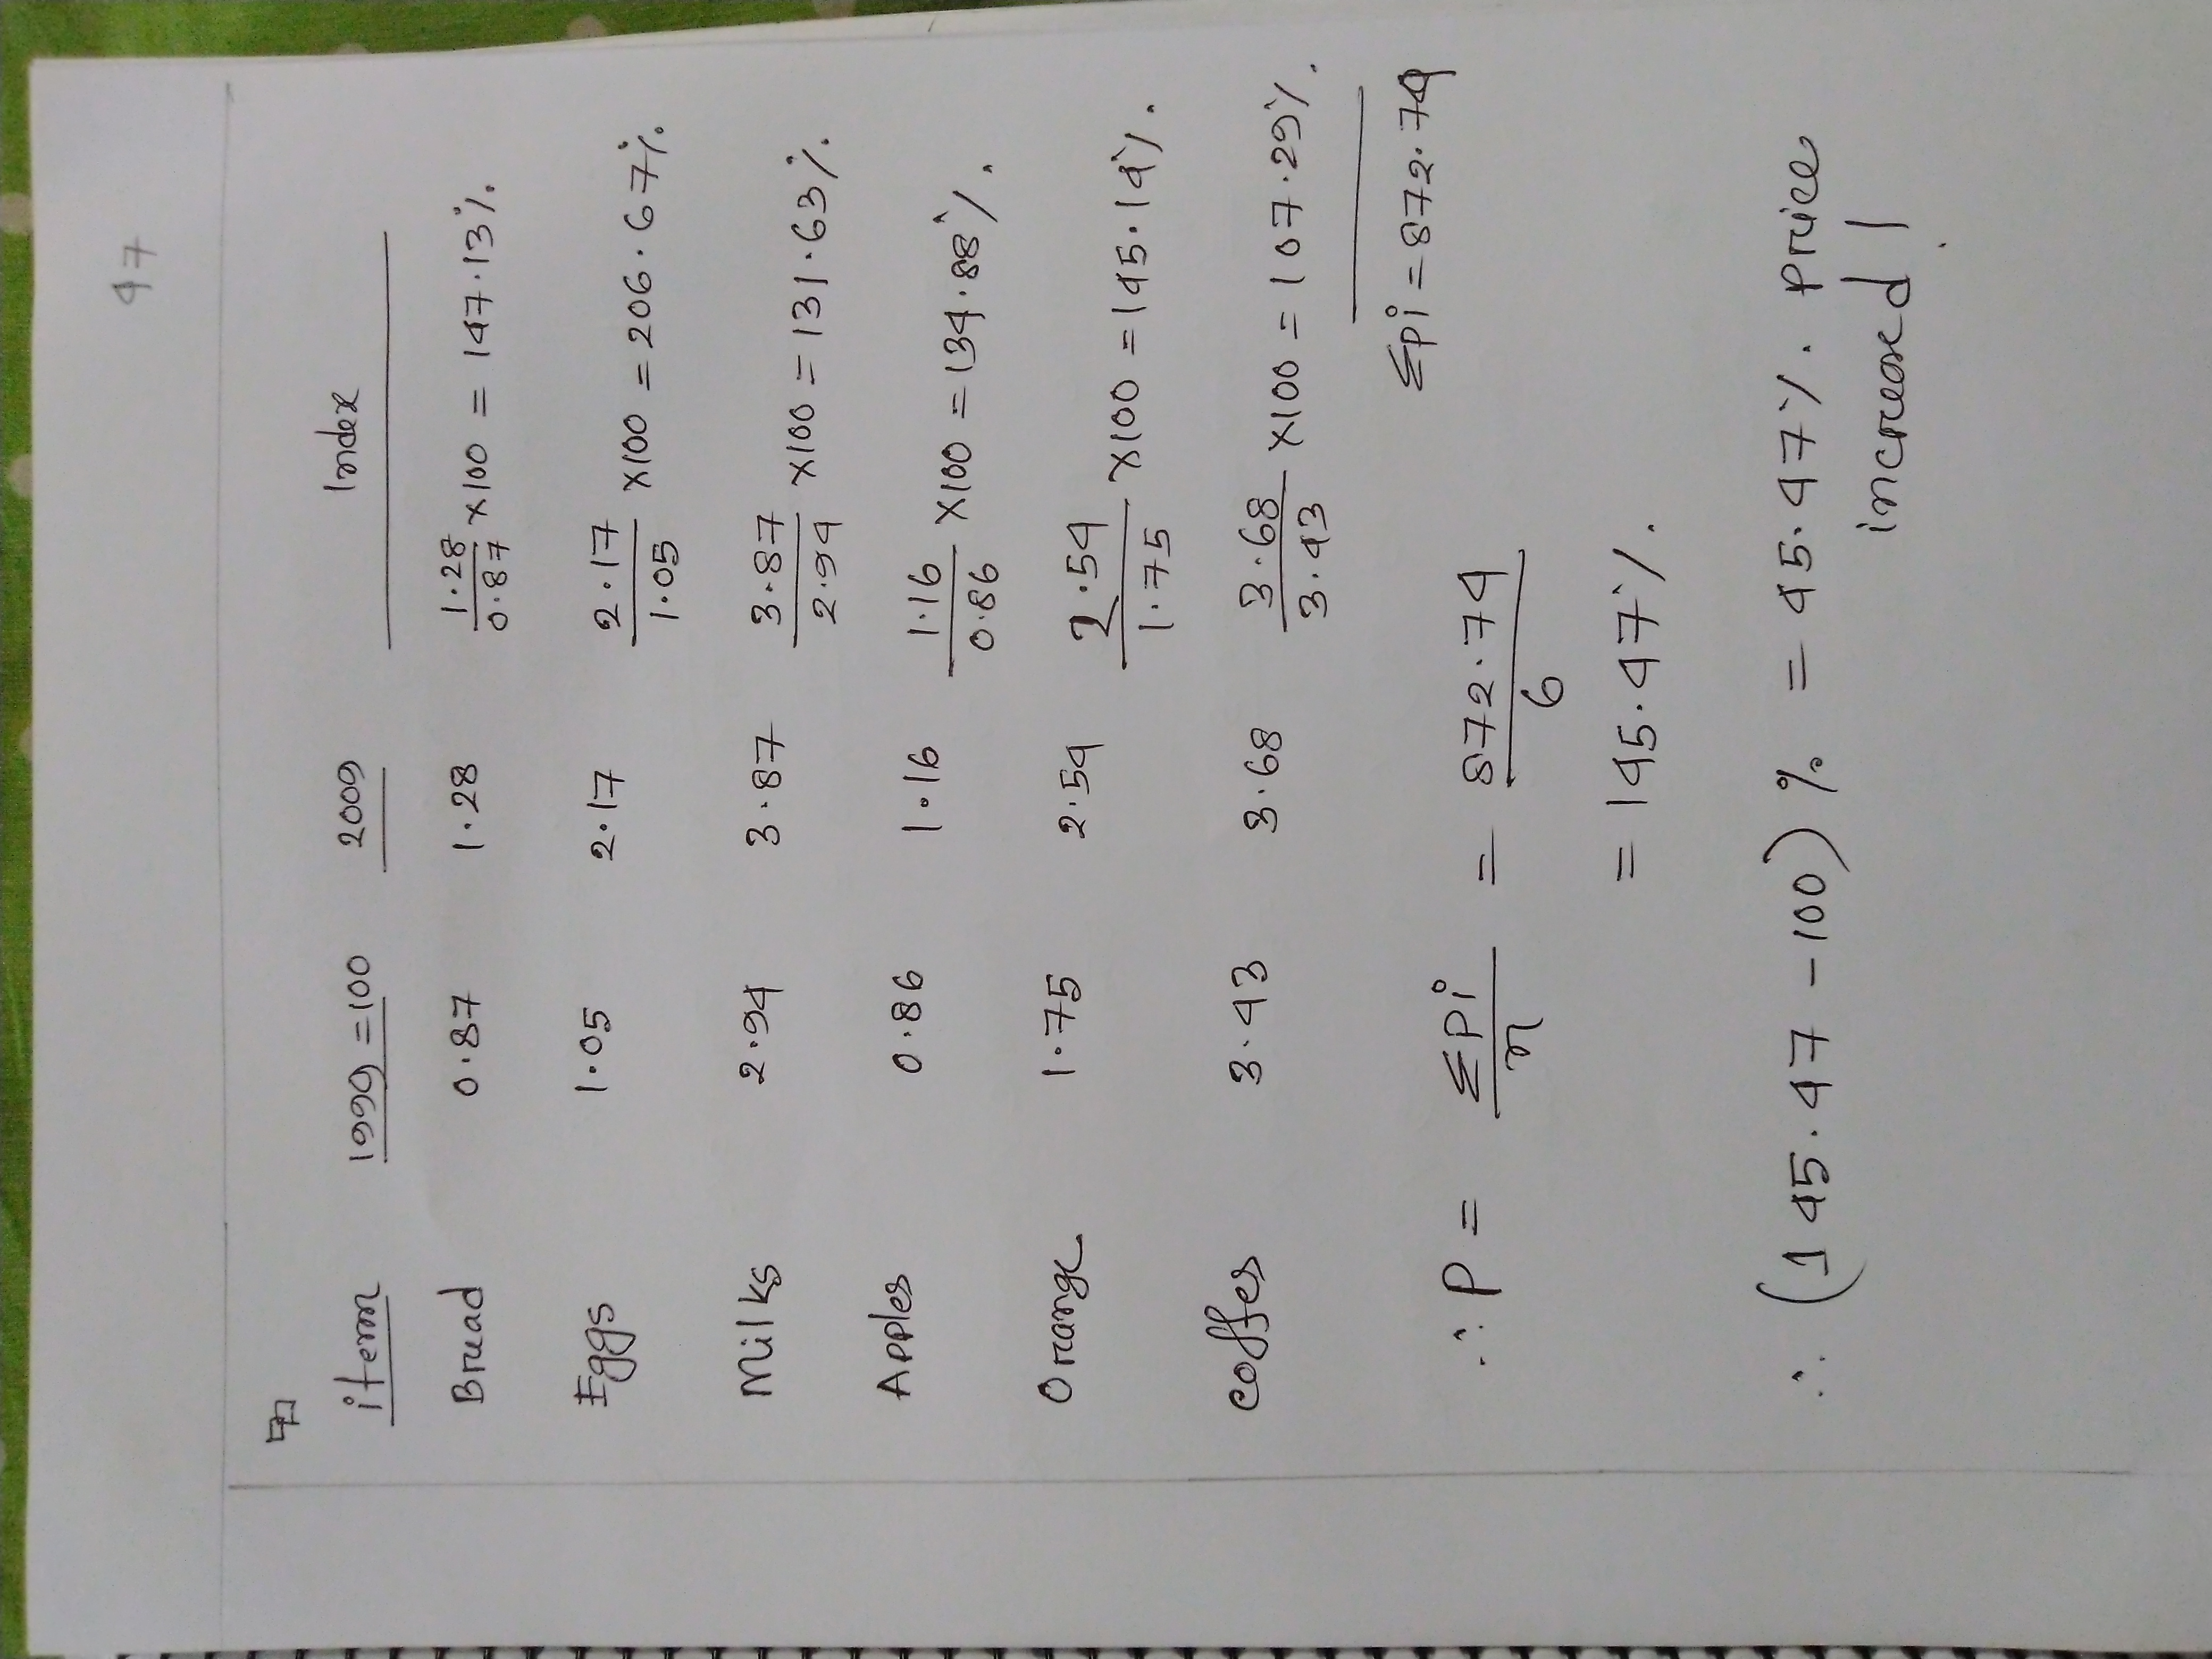 47
item 1999=100 2009 Index
Bread 0.87 1.28 1.28/0.87 ×100 = 147.13%.
Eggs 1.05 2.17 2.17/1.05 ×100 = 206.67%.
Milks 2.94 3.87 3.87/2.94 ×100 = 131.63%.
Apples 0.86 1.16 1.16/0.86 ×100 = 134.88%.
Orange 1.75 2.54 2.54/1.75 ×100 = 145.14%.
Coffes 3.43 3.68 3.68/3.43 ×100 = 107.29%.
Σpi = 872.74
∴ P = ΣPi/n = 872.74/6
= 145.47%.
∴ (145.47 - 100)% = 45.47%. price
increased |